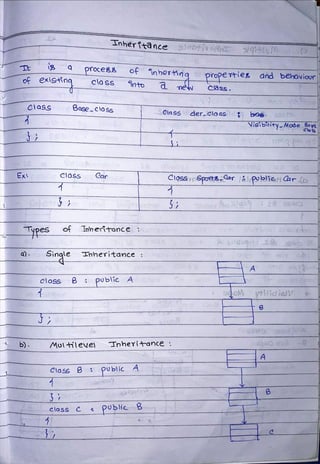 Inheritance
It is a process of inheriting properties and behaviour
of existing class into a new class.
class Base_class
{
};
class der_class :
Visibility_Mode Base class
{
};
Ex: class Car
{
};
Class Sports_Car : public Car
{
};
Types of Inheritance :
a). Single Inheritance :
class B : public A
{
};
A
B
b). Multilevel Inheritance :
class B : public A
{
};
class C : public B
{
};
A
B
C